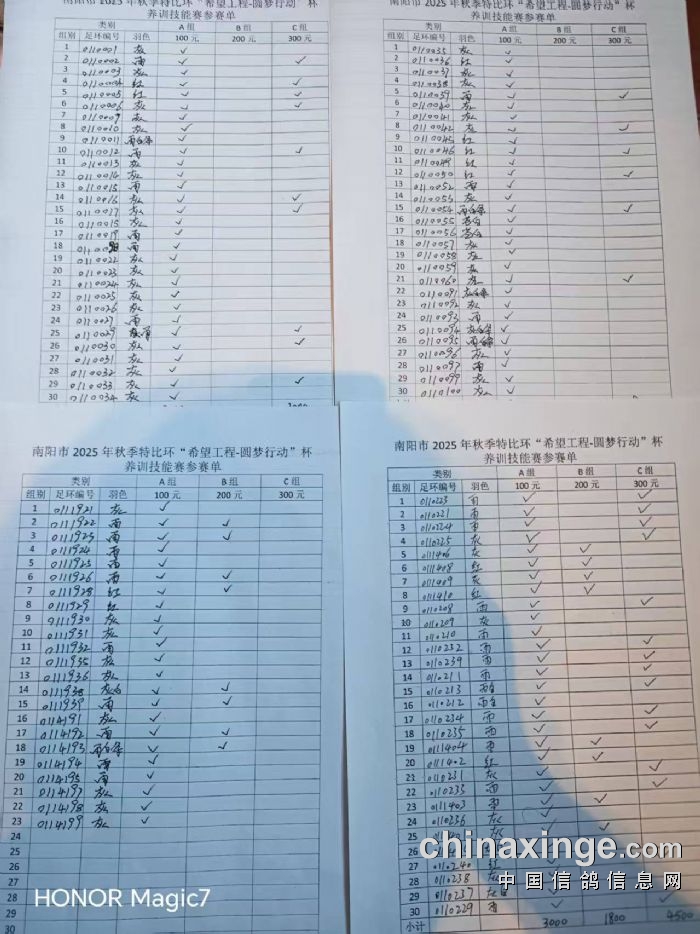 南阳市 2025 年秋季特比环“希望工程-圆梦行动”杯
养训技能赛参赛单
类别 A 组 B 组 C 组
组别 足环编号 羽色 100 元 200 元 300 元
1 0110001 灰 ✓
2 0110002 雨 ✓ ✓
3 0110003 灰 ✓
4 0110004 红 ✓ ✓
5 0110005 红 ✓ ✓
6 0110006 灰 ✓ ✓
7 0110009 灰 ✓
8 0110010 灰 ✓
9 0110011 雨白条 ✓
10 0110012 雨 ✓ ✓
11 0110013 灰 ✓
12 0110014 灰 ✓
13 0110015 雨 ✓
14 0110016 灰 ✓ ✓
15 0110017 灰 ✓ ✓
16 灰 ✓
17 0110019 雨 ✓
18 雨 ✓
19 0110022 灰 ✓
20 0110023 灰 ✓
21 0110024 灰 ✓
22 0110025 灰 ✓
23 0110026 灰 ✓
24 0110027 雨 ✓
25 0110029 ✓ ✓
26 0110030 灰 ✓ ✓
27 0110031 灰 ✓
28 0110032 灰 ✓
29 0110033 灰 ✓ ✓
30 0110034 灰 ✓
南阳市 2025 年秋季特比环“希望工程-圆梦行动”杯
养训技能赛参赛单
类别 A 组 B 组 C 组
组别 足环编号 羽色 100 元 200 元 300 元
1 0110035 灰 ✓
2 0110036 红 ✓
3 0110037 灰 ✓
4 0110038 灰 ✓
5 0110039 雨 ✓ ✓
6 0110040 灰 ✓
7 0110041 灰 ✓
8 0110042 灰 ✓ ✓
9 0110045 红 ✓
10 0110046 红 ✓ ✓
11 0110049 红 ✓
12 0110050 红 ✓ ✓
13 0110052 雨 ✓
14 0110053 灰 ✓
15 0110054 雨白条 ✓ ✓
16 0110055 ✓
17 0110056 ✓
18 0110057 灰 ✓
19 0110058 灰 ✓
20 0110059 灰 ✓
21 0110060 灰 ✓ ✓
22 0110091 灰白条 ✓
23 0110092 灰 ✓
24 0110093 雨 ✓
25 0110094 灰白条 ✓
26 0110095 雨白条 ✓
27 0110096 灰 ✓
28 0110097 雨 ✓
29 0110099 灰 ✓
30 0110100 灰 ✓
南阳市 2025 年秋季特比环“希望工程-圆梦行动”杯
养训技能赛参赛单
类别 A 组 B 组 C 组
组别 足环编号 羽色 100 元 200 元 300 元
1 0111921 灰 ✓
2 0111922 雨 ✓ ✓
3 0111923 雨 ✓ ✓
4 0111924 雨 ✓
5 0111925 雨 ✓
6 0111926 雨 ✓ ✓
7 0111928 红 ✓ ✓
8 0111929 红 ✓
9 0111930 灰 ✓
10 0111931 灰 ✓
11 0111932 雨 ✓
12 0111935 灰 ✓
13 0111936 灰 ✓
14 0111938 灰白 ✓ ✓
15 0111939 雨 ✓ ✓
16 0114191 灰 ✓
17 0114192 雨 ✓ ✓
18 0114193 雨白条 ✓ ✓
19 0114194 雨 ✓
20 0114195 雨 ✓
21 0114197 灰 ✓
22 0114198 灰 ✓
23 0114199 灰 ✓
24
25
26
27
28
29
30
南阳市 2025 年秋季特比环“希望工程-圆梦行动”杯
养训技能赛参赛单
类别 A 组 B 组 C 组
组别 足环编号 羽色 100 元 200 元 300 元
1 0110223 雨 ✓ ✓
2 0110221 雨 ✓ ✓
3 0110224 雨 ✓ ✓
4 0110225 灰 ✓ ✓
5 0111406 灰 ✓ ✓
6 0111408 红 ✓ ✓
7 0111409 灰 ✓ ✓
8 0111410 红 ✓ ✓
9 0110208 雨 ✓ ✓
10 0110209 灰 ✓
11 0110210 雨 ✓
12 0110232 雨 ✓ ✓
13 0110239 雨 ✓ ✓
14 0110211 雨 ✓
15 0110213 雨白 ✓ ✓
16 0110212 雨白 ✓ ✓
17 0110234 雨 ✓ ✓
18 0110235 雨 ✓ ✓
19 0111404 雨 ✓ ✓
20 0111402 红 ✓ ✓
21 0110231 灰 ✓ ✓
22 0110233 雨 ✓ ✓
23 0111403 雨 ✓ ✓
24 0110236 灰 ✓
25
26
27 0110240 红
28 0110238 灰
29 0110237
30 0110229 雨
小计 3000 1800 4500
HONOR Magic7
chinaxinge.com
中国信鸽信息网